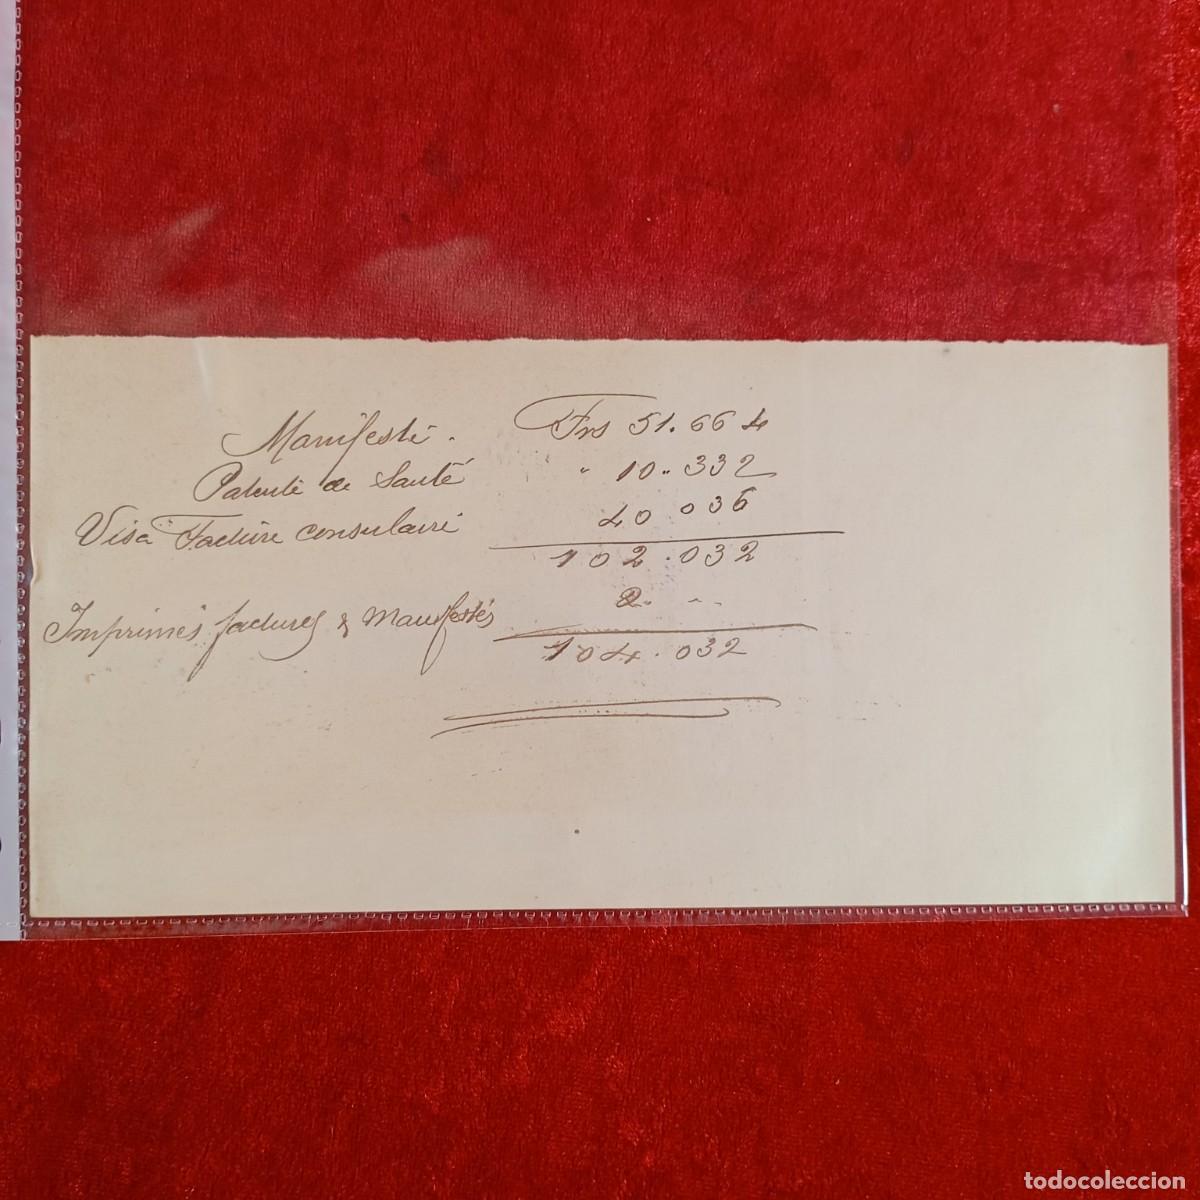 Manifeste. Frs 51.664
Patente de Santé " 10..332
Visa Facture consulaire 40 036
102.032
Imprimés factures & Manifestes 2. " "
104.032
todocoleccion